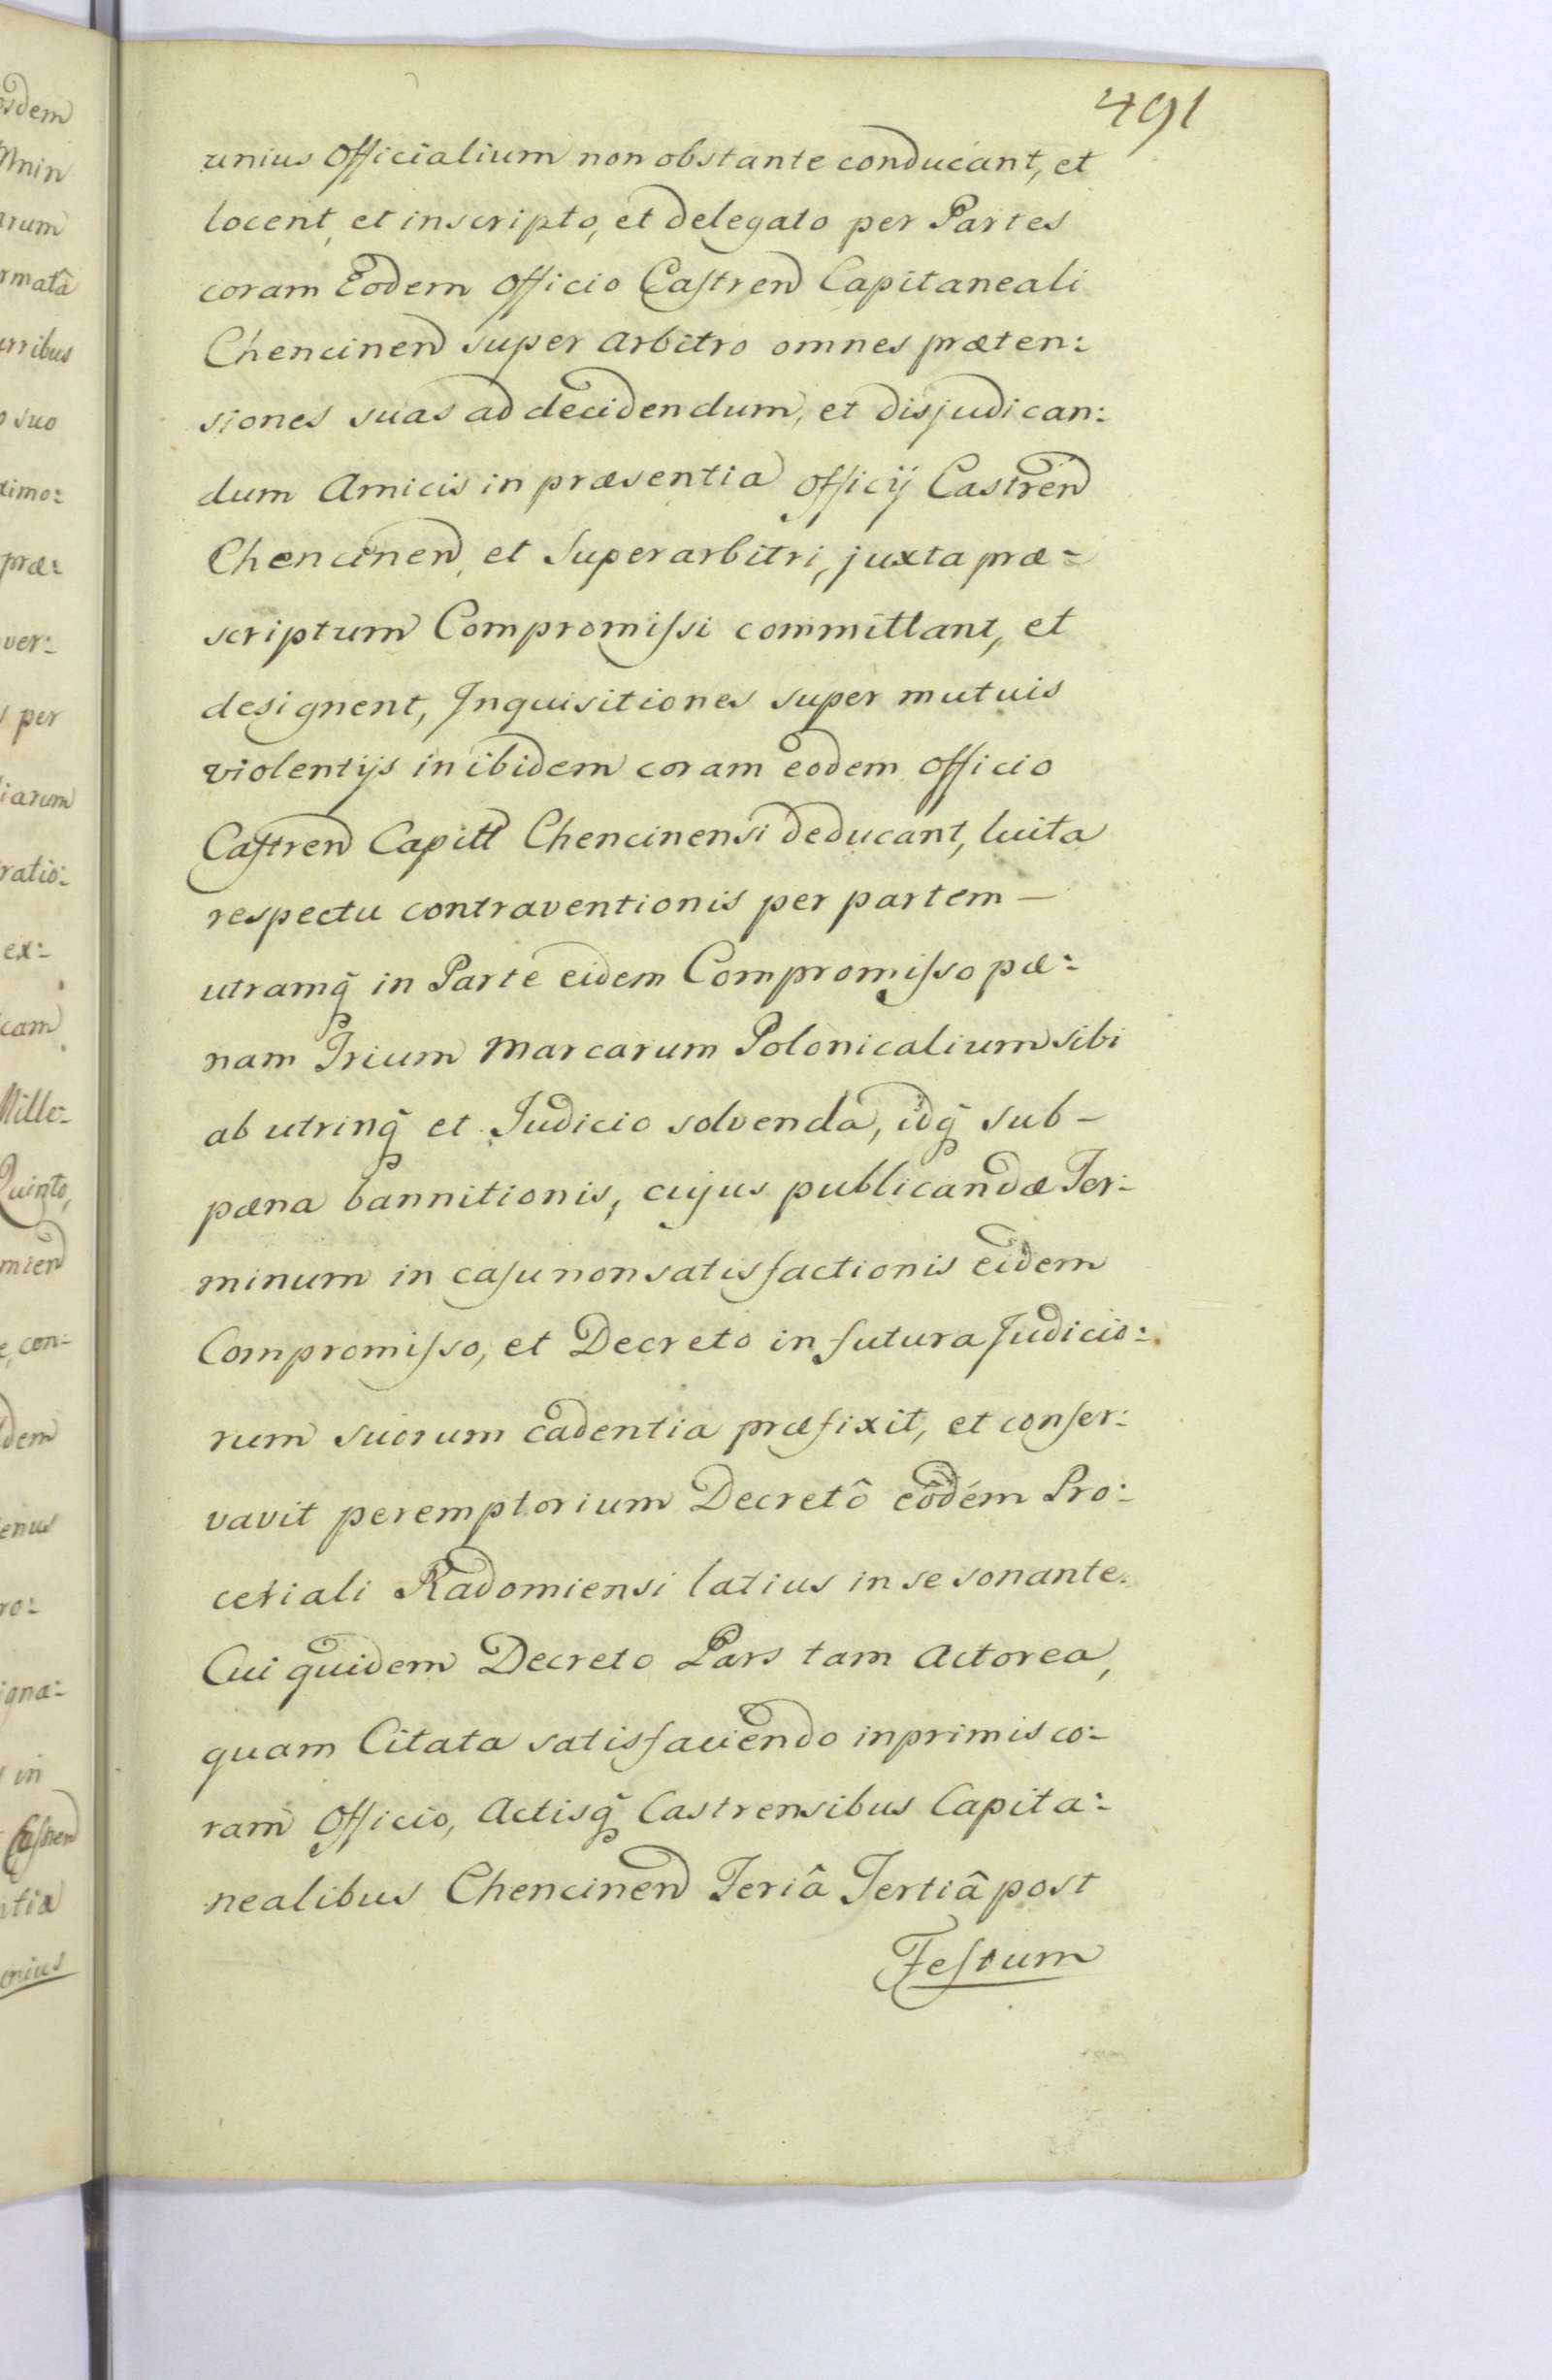 491
unius Officialium non obstante conducant, et
locent, et inscripto, et delegato per Partes
coram Eodem Officio Castren̄d Capitaneali
Chencinen̄d super arbitro omnes præten:
siones suas ad decidendum, et disjudican:
dum Amicis in præsentia Officÿ Castren̄d
Chencinen̄d, et Superarbitri, juxta præ=
scriptum Compromiſsi committant, et
designent, Inquisitiones super mutuis
violentÿs in ibidem coram eodem Officio
Caſtren̄d Capitl Chencinensi deducant, luita
respectu contraventionis per partem —
utramq̃ in Parte eidem Compromiſso pæ:
nam Trium Marcarum Polonicalium sibi
ab utrinq̃ et Judicio solvenda, idq̃ sub –
pæna bannitionis, cujus publicandæ Ter:
minum in caſu non satisfactionis eidem
Compromiſso, et Decreto in futura Judicio:
rum suorum cadentia præfixit, et conſer:
vavit peremptorium Decretô eôdém Pro:
cetiali Radomiensi latius in se sonante.
Cui quidem Decreto Pars tam Actorea,
quam Citata satisfaciendo inprimis co:
ram Officio, Actisq̃ Castrensibus Capita:
nealibus Chencinen̄d Feriâ Tertiâ post
Feſtum
osdem
Mnin
arum
rmatâ
urribus
o suo
timo:
præ:
ver:
s per
liarum
ratio:
ex:
cam
Mille:
Quinto,
mien̄d
e, con:
dem
enus
ro:
igna:
s in
Caſtren̄d
ntia
onius